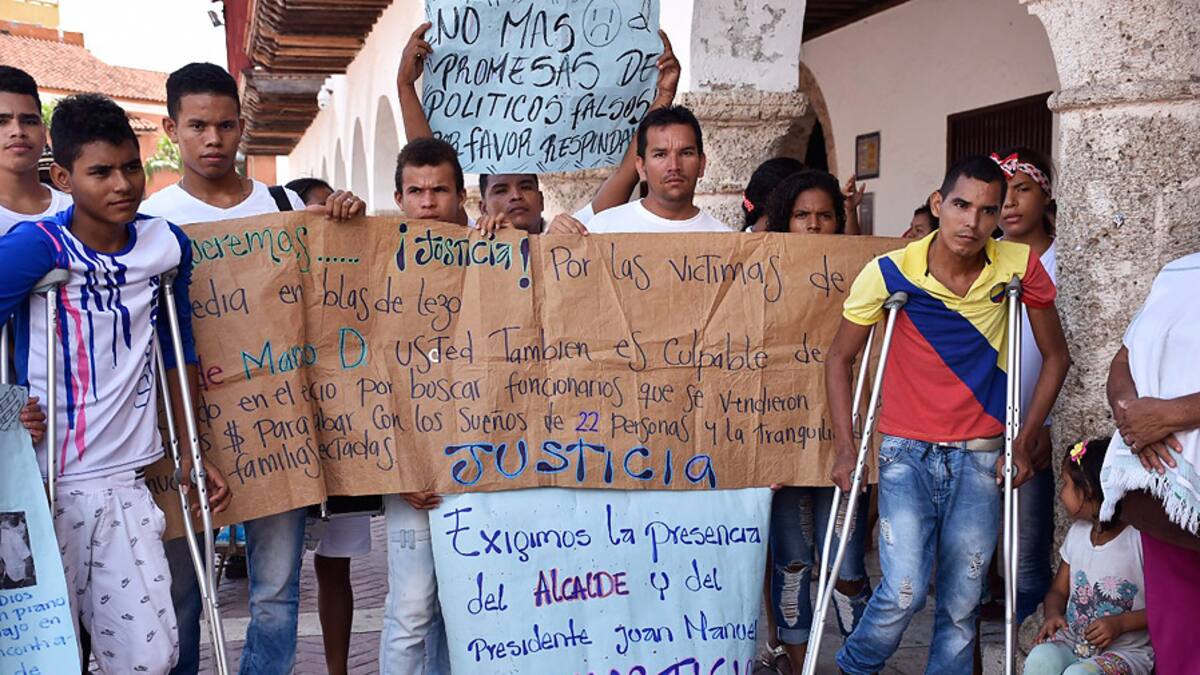 NO MAS
PROMESAS DE
POLITICOS FALSOS
POR FAVOR RESPONDAN
ueremos..... ¡Justicia! Por las victimas de
media en blas de lezo
de Mano D Usted Tambien es culpable de
do en el por boscar funcionarios que se vendieron
$ Para con los sueños de 22 personas y la tranquili
familias ectadas.
JUSTICIA
Exigimos la presencia
del ALCALDE y del
Presidente Juan Manuel
JUSTICIA
Dios
un plano
bajo en
contra
de